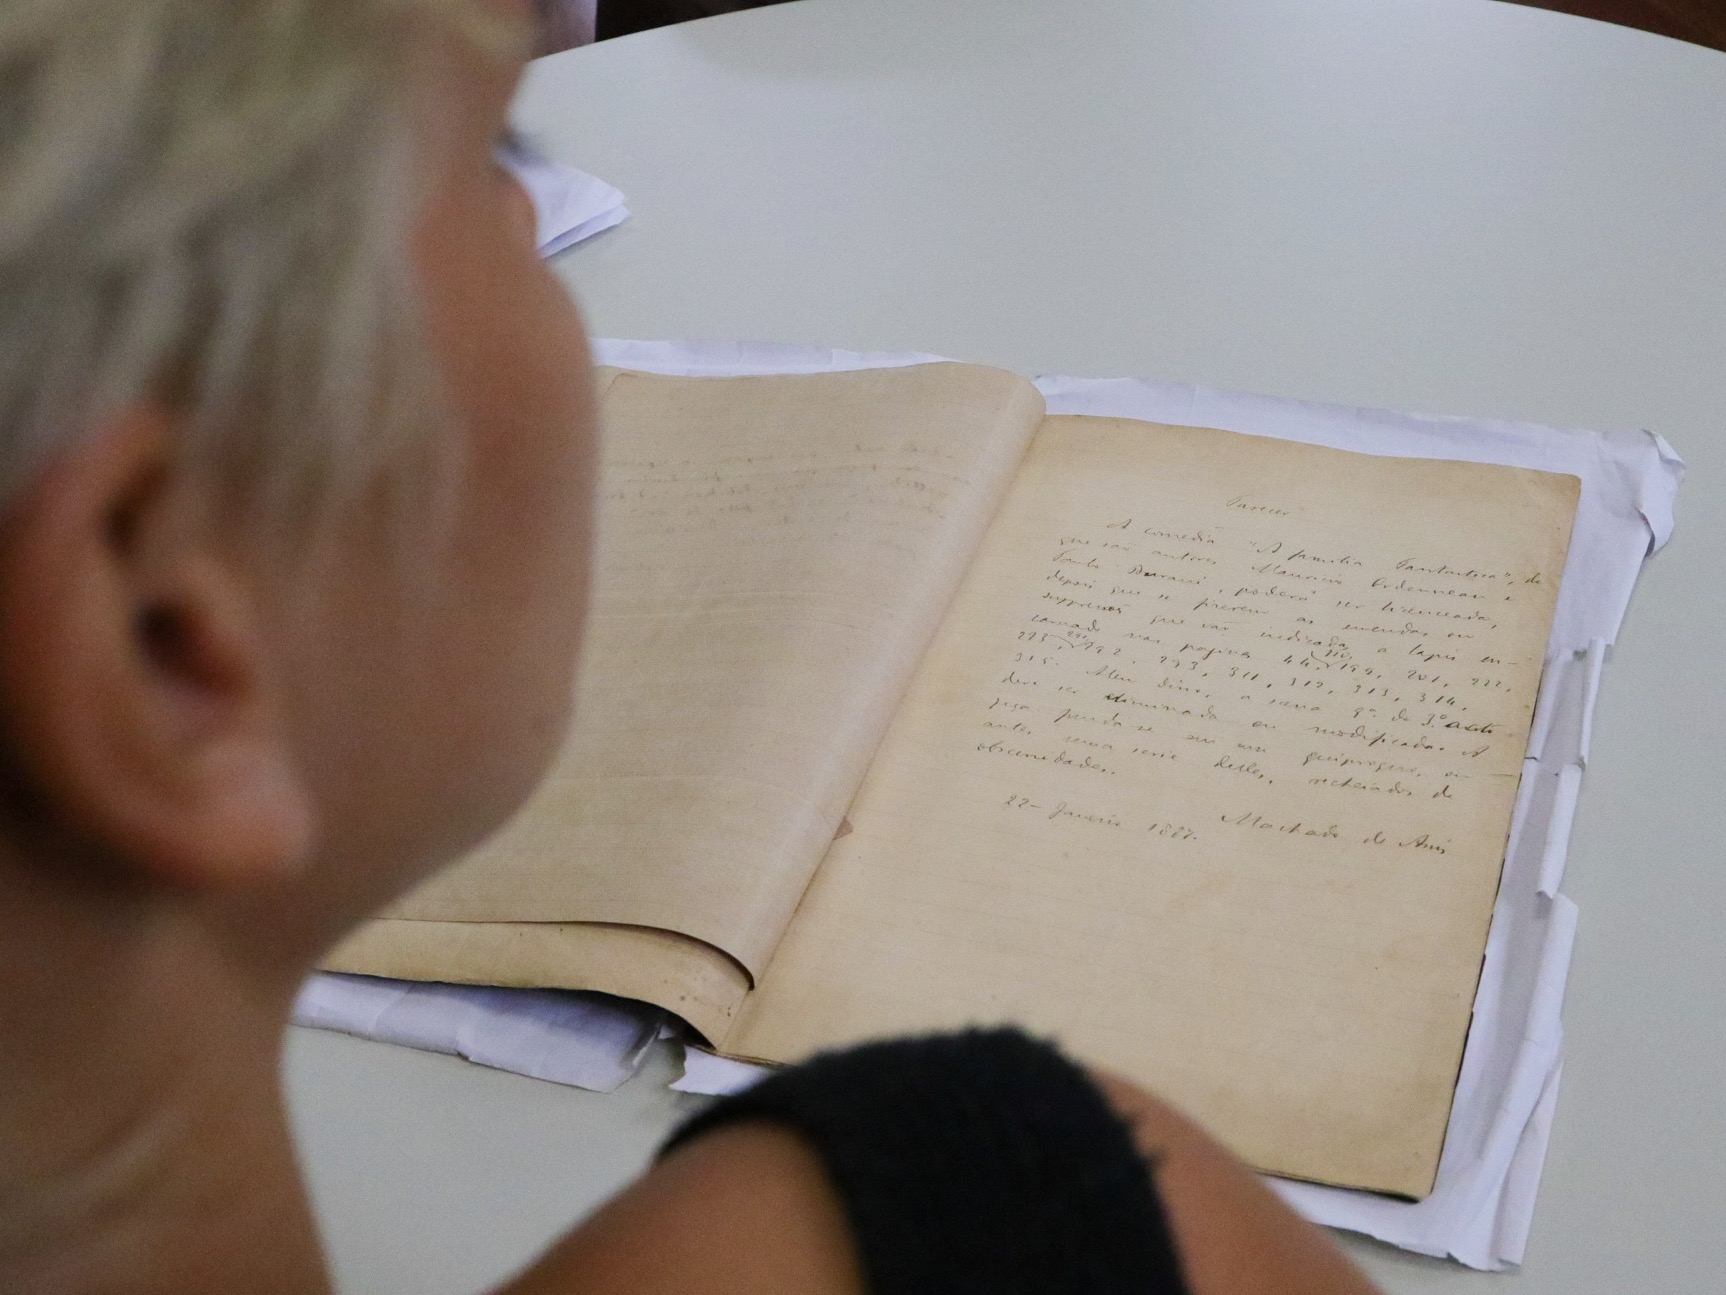 Parecer
A comedia "A familia Fantastica", de
que são autores Mauricio Ordonneau e
Paulo Burani, poderá ser licenciada,
depois que se fizerem as emendas ou
suppressões que vão indicadas a lapis en-
carnado nas paginas 44, 110, 199, 201, 222,
223, 291, 292, 293, 311, 312, 313, 314,
315. Alem disso, a scena 9ª do 3º acto
deve ser eliminada ou modificada. A
peça funda-se em um quiproquo, ou
antes uma serie delles, recheiados de
obscenidades.
22 - Janeiro 1887. Machado de Assis